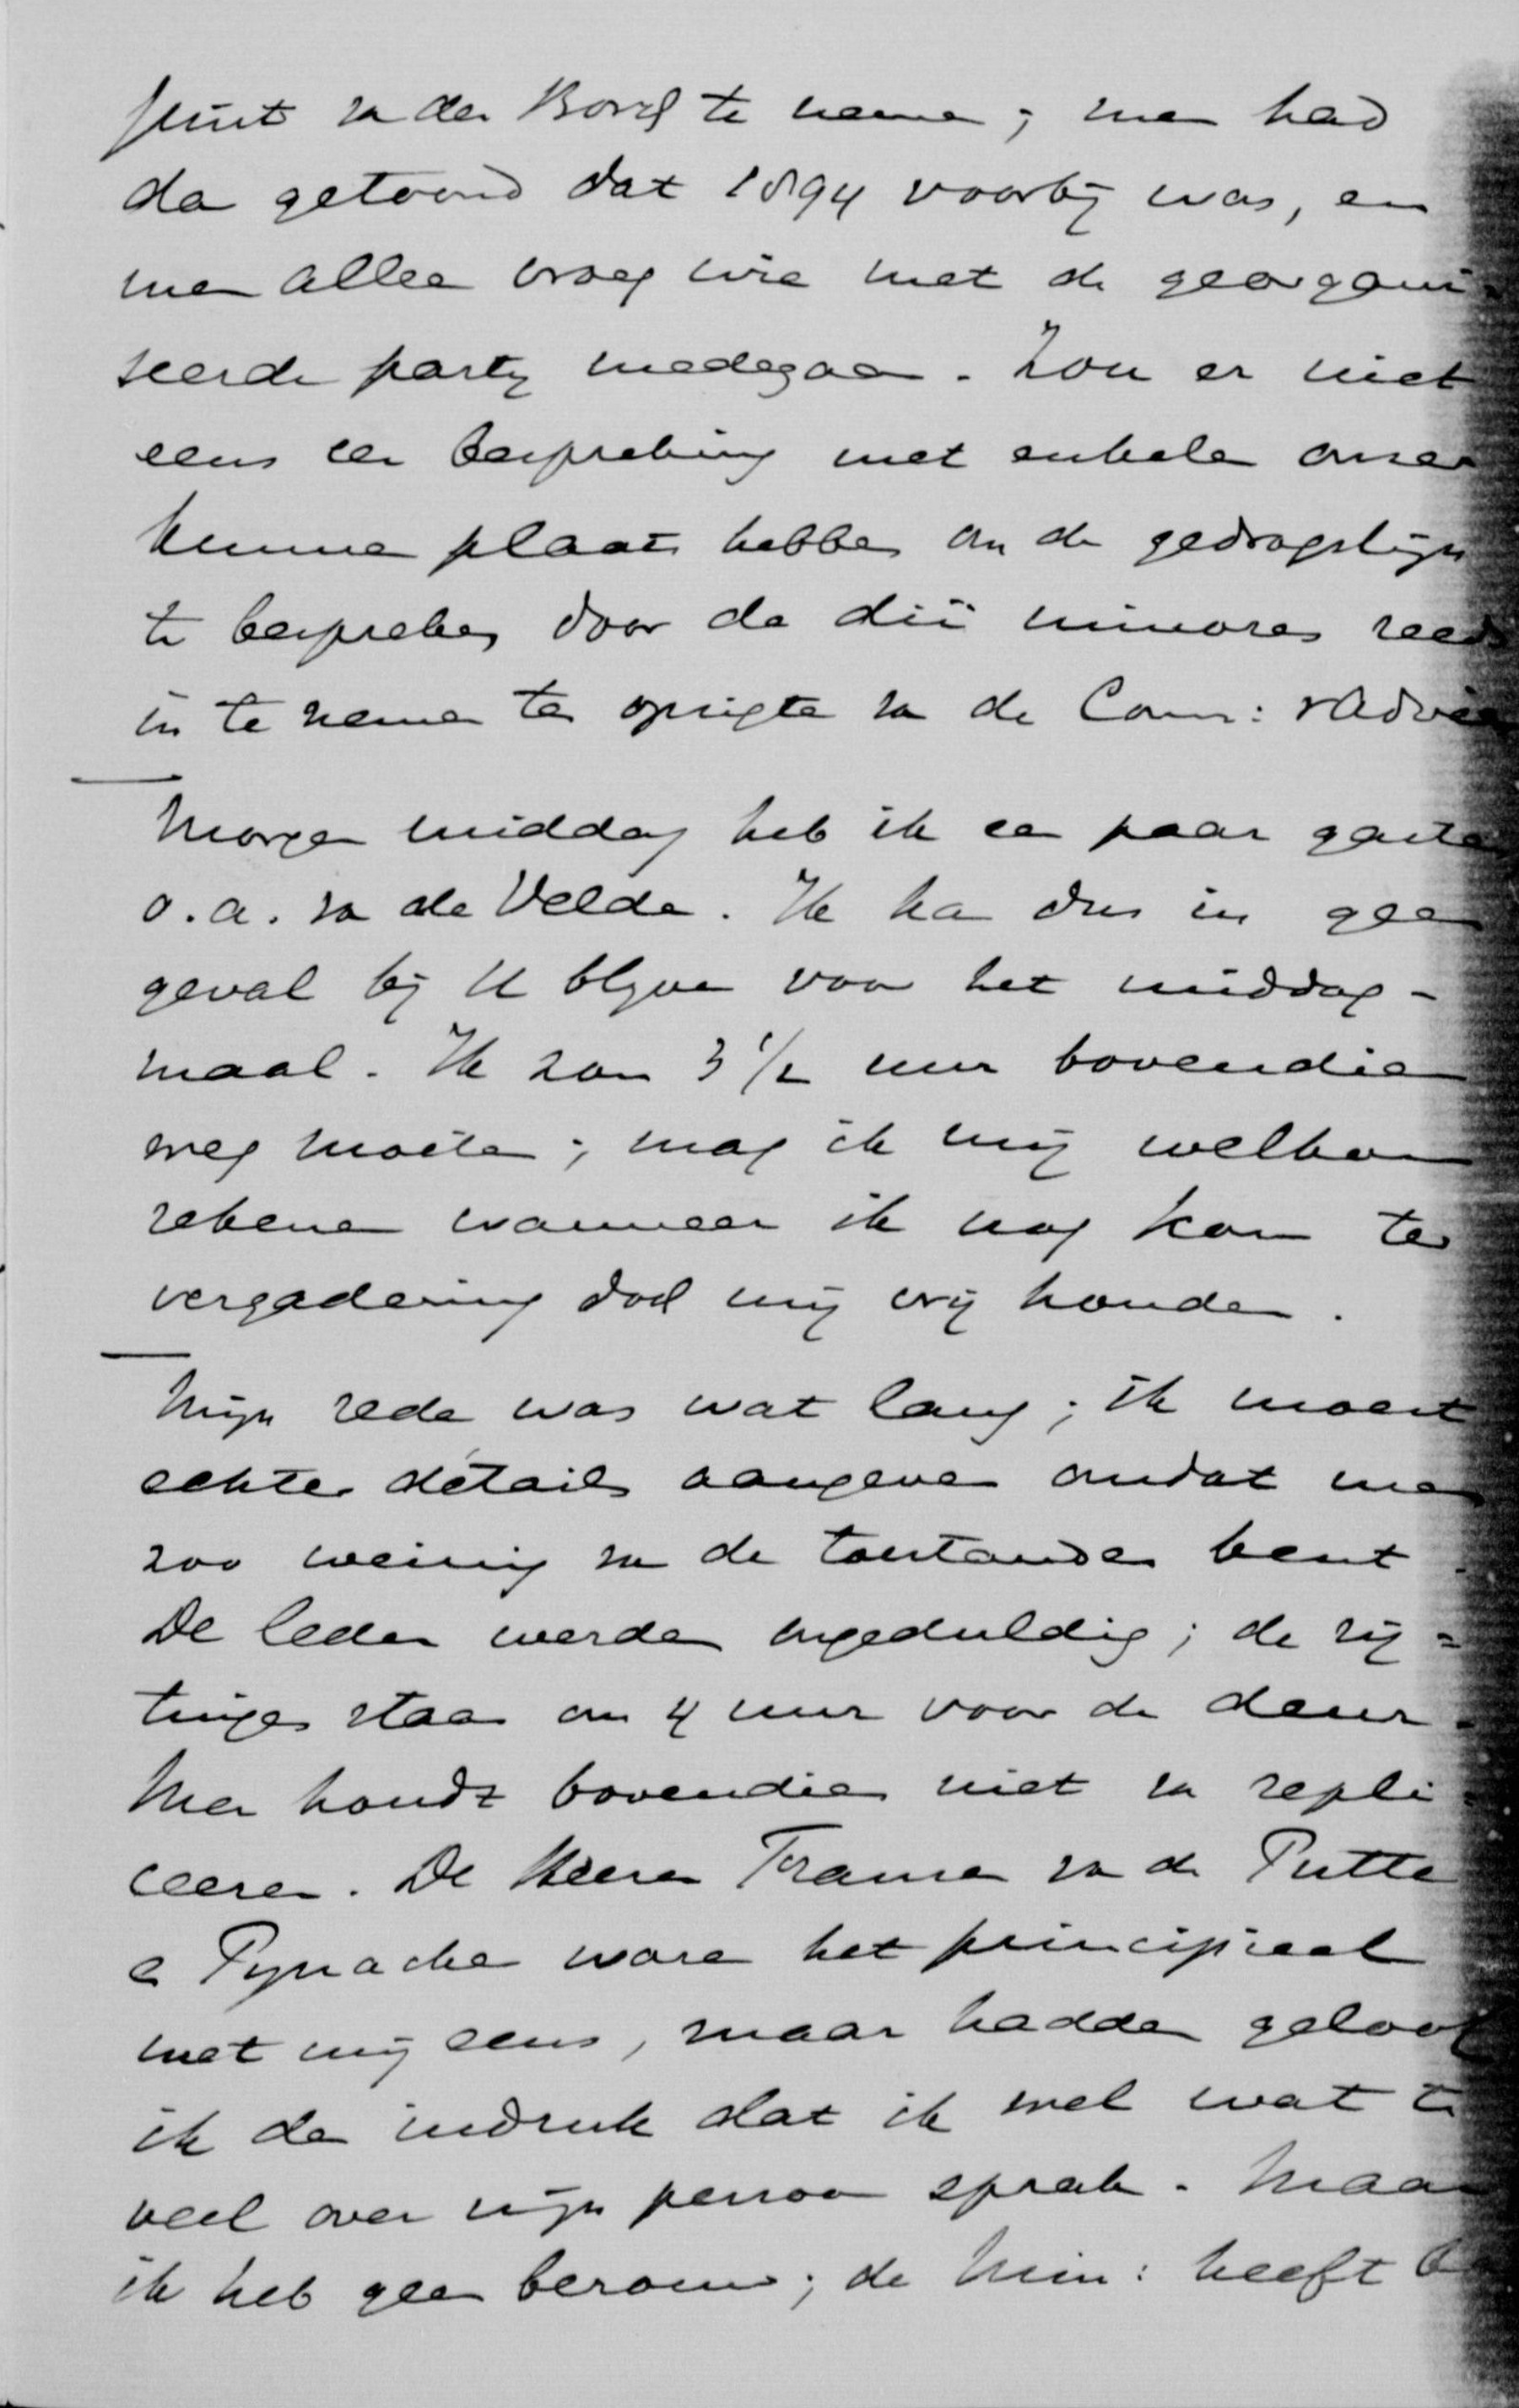 juist van der Borch te nemen; men had
dan getoond dat 1894 voorbij was, en
men alleen vroeg wie met de georgani-
seerde party medegaan. Zou er niet
eens een bespreking met enkelen onzer
kunnen plaats hebben om de gedragslijn
te bespreken door de dii minores reeds
in te nemen ten opzigte van de Comm: v Advies
Morgen middag heb ik een paar gasten
o.a. van de Velde. Ik kan dus in geen
geval bij U blyven voor het middag-
maal. Ik zou 3 1/2 uur bovendien
weg moeten; mag ik mij welkom
rekenen wanneer ik nog kom ter
vergadering doch mij vrij houden.
Mijn rede was wat lang; ik moest
echter détails aangeven omdat men
zoo weinig van de toestanden kent.
De leden werden ongeduldig; de rij=
tuigen staan om 4 uur voor de deur.
Men houdt bovendien niet van repli=
ceeren. De Heeren Fransen van de Putte
en Pynacker waren het principieel
met mij eens, maar hadden geloof
ik den indruk dat ik wel wat te
veel over mijn persoon sprak. Maar
ik heb geen berouw; de Min: heeft